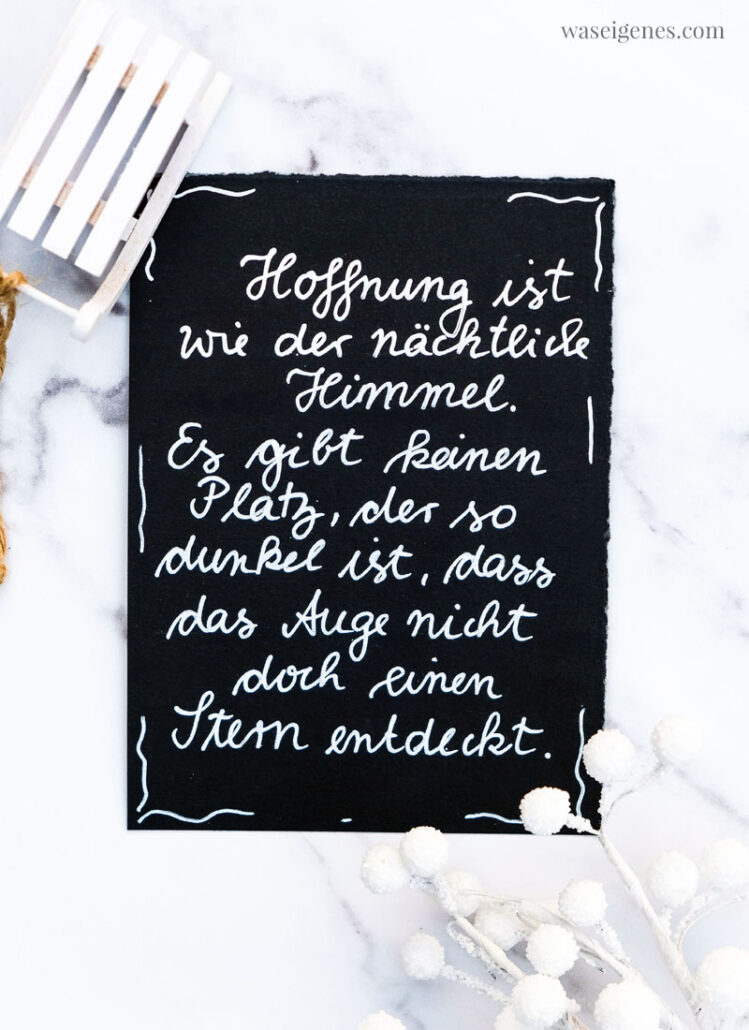 waseigenes.com
Hoffnung ist
wie der nächtliche
Himmel.
Es gibt keinen
Platz, der so
dunkel ist, dass
das Auge nicht
doch einen
Stern entdeckt.